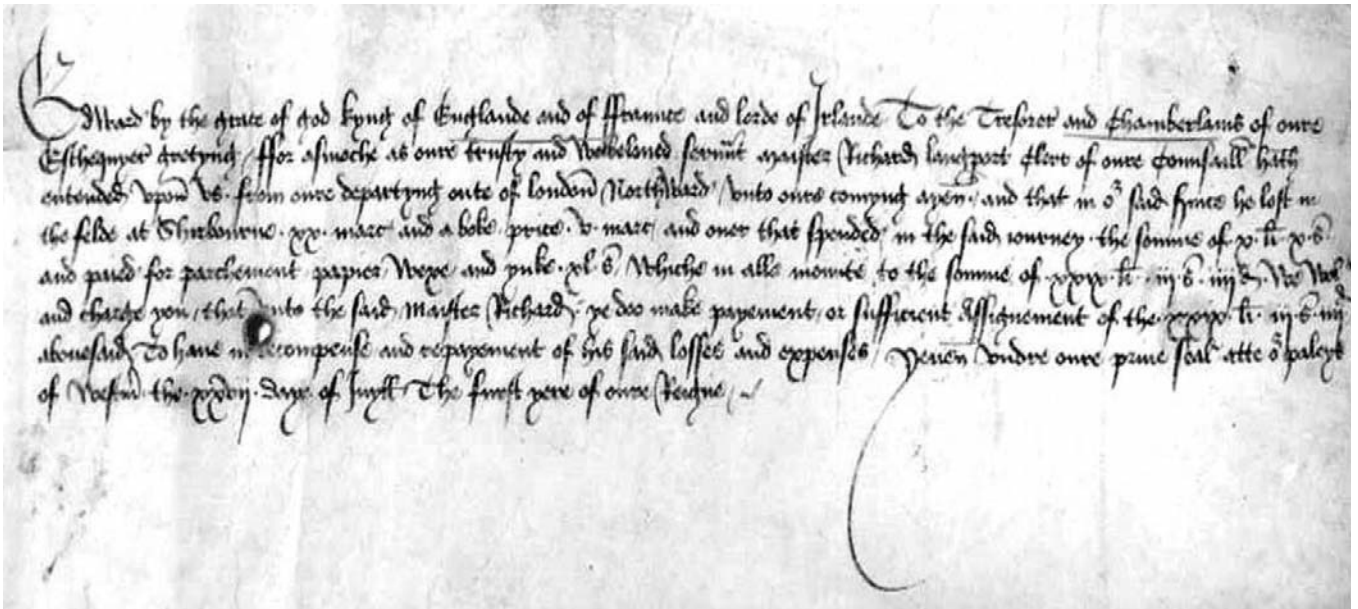 Edward by the grace of god kyng of Englande and of ffraunce and lorde of Irlande To the Tresorer and Chamberlains of oure
Eschequyer gretyng / ffor asmoche as oure trusty and Welbeloued seruāt maister Richard langport Clerc of oure Counsaill hath
entended vpon vs from oure departyng oute of london NorthWard / vnto oure comyng ayen / and that in oʳ said seruice he lost in
the felde at Shirbourne · xx · marc and a boke price · v · marc / and ouer that spended in the said iourney the somme of x · li · x · s
and paied for parchement papier Wexe and ynke · xl · s / Whiche in alle mounte to the somme of · xxix · li · iij · s · iiij d · We Wol
and charge you / that vnto the said Maister Richard ye doo make payement or sufficient Assignement of the · xxix · li · iij · s · iiij d
abouesaid To haue in recompense and repayement of his said losses and expenses / Yeuen Vndre oure priue seal atte oʳ paleys
of Westm̄ the · xxvij · daye of Juyll The furst yere of oure Reigne /